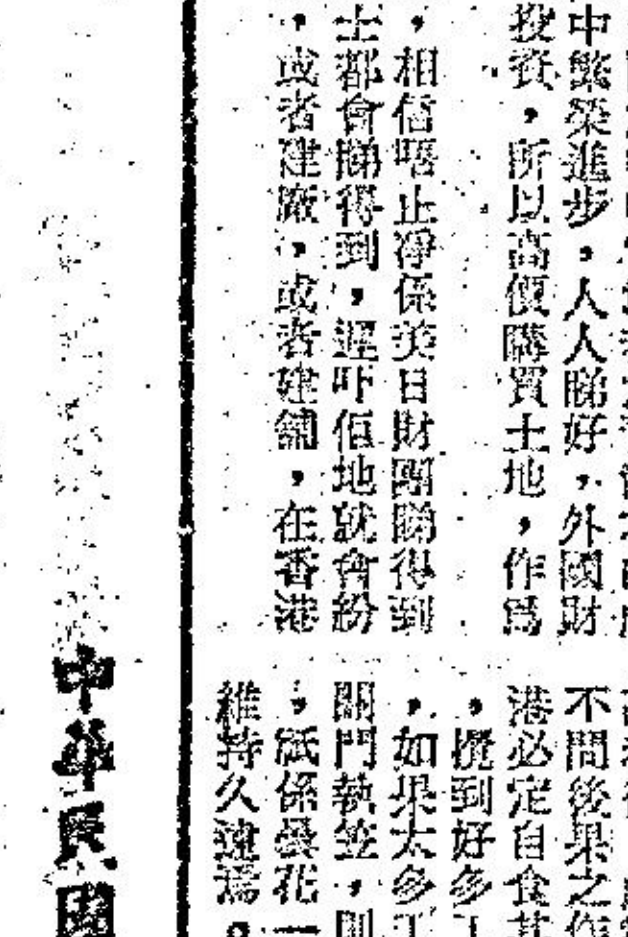 中繁榮進步，人人睇好，外國財
投資，所以高價購買土地，作爲
，相信唔止凈係美日財團睇得到
士都會睇得到，遲吓佢地就會紛
，或者建廠，或者建舖，在香港
不問後果之作
港必定自食其
，攪到好多工
，如果太多工
關門執笠，則
，祇係曇花一
維持久遠焉。
中華民國